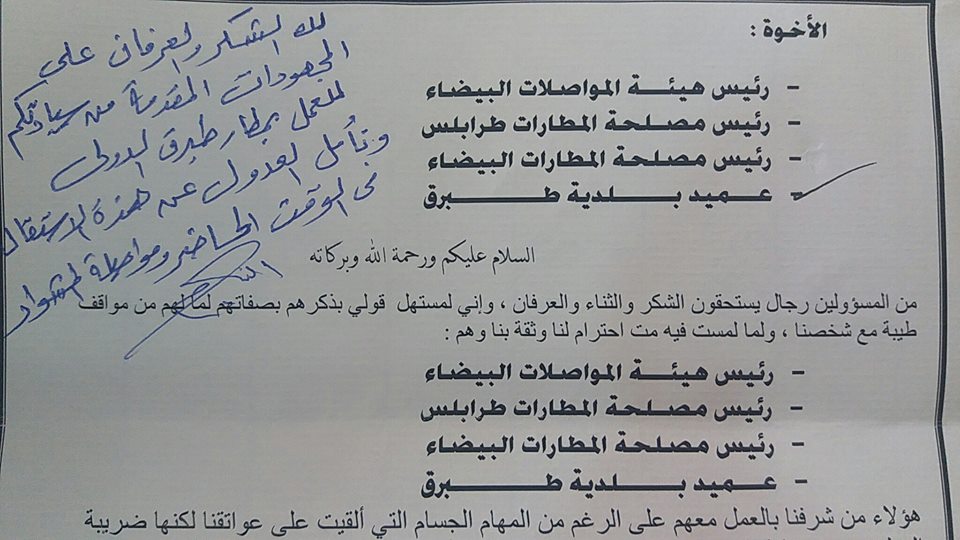 الأخوة :
- رئيس هيئة المواصلات البيضاء
- رئيس مصلحة المطارات طرابلس
- رئيس مصلحة المطارات البيضاء
- عميد بلدية طبرق
لك الشكر والعرفان على
المجهودات المقدمة من سيادتكم
للعمل بمطار طبرق الدولى
ونأمل العدول عن هذه الاستقالة
فى الوقت الحاضر ومواصلة المشوار
السلام عليكم ورحمة الله وبركاته
من المسؤولين رجال يستحقون الشكر والثناء والعرفان ، وإني لمستهل قولي بذكرهم بصفاتهم لما لهم من مواقف
طيبة مع شخصنا ، ولما لمست فيه مت احترام لنا وثقة بنا وهم :
- رئيس هيئة المواصلات البيضاء
- رئيس مصلحة المطارات طرابلس
- رئيس مصلحة المطارات البيضاء
- عميد بلدية طبرق
هؤلاء من شرفنا بالعمل معهم على الرغم من المهام الجسام التي ألقيت على عواتقنا لكنها ضريبة